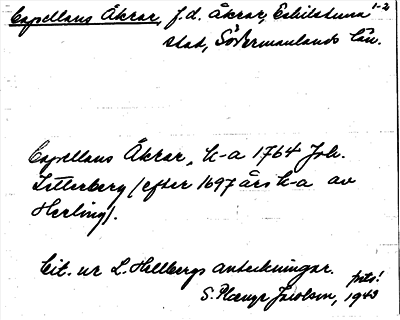 Capellans Åkrar, f.d. åkrar, Eskilstuna 1-2
stad, Södermanlands län.
Capellans Åkrar, k-a 1764 Joh.
Zetterberg (efter 1697 års k-a av
Herling).
Cit. ur L. Hellbergs anteckningar.
foto!
S. Jacobson, 1943